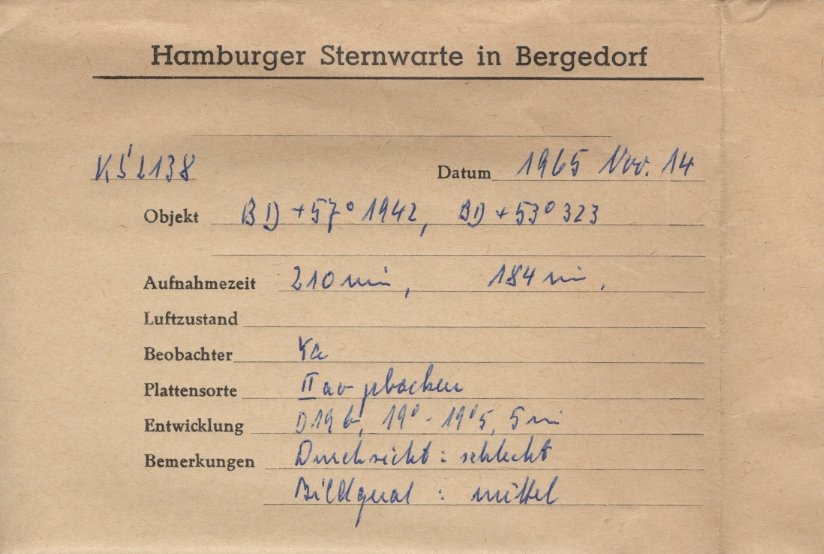 Hamburger Sternwarte in Bergedorf
KS 2138 Datum 1965 Nov. 14
Objekt BD +57° 1942, BD +53° 323
Aufnahmezeit 210 min, 184 min.
Luftzustand
Beobachter
Plattensorte II a o gebacken
Entwicklung D19b, 19° - 19°5, 5 min
Bemerkungen Durchsicht: schlecht
Bildqual: mittel